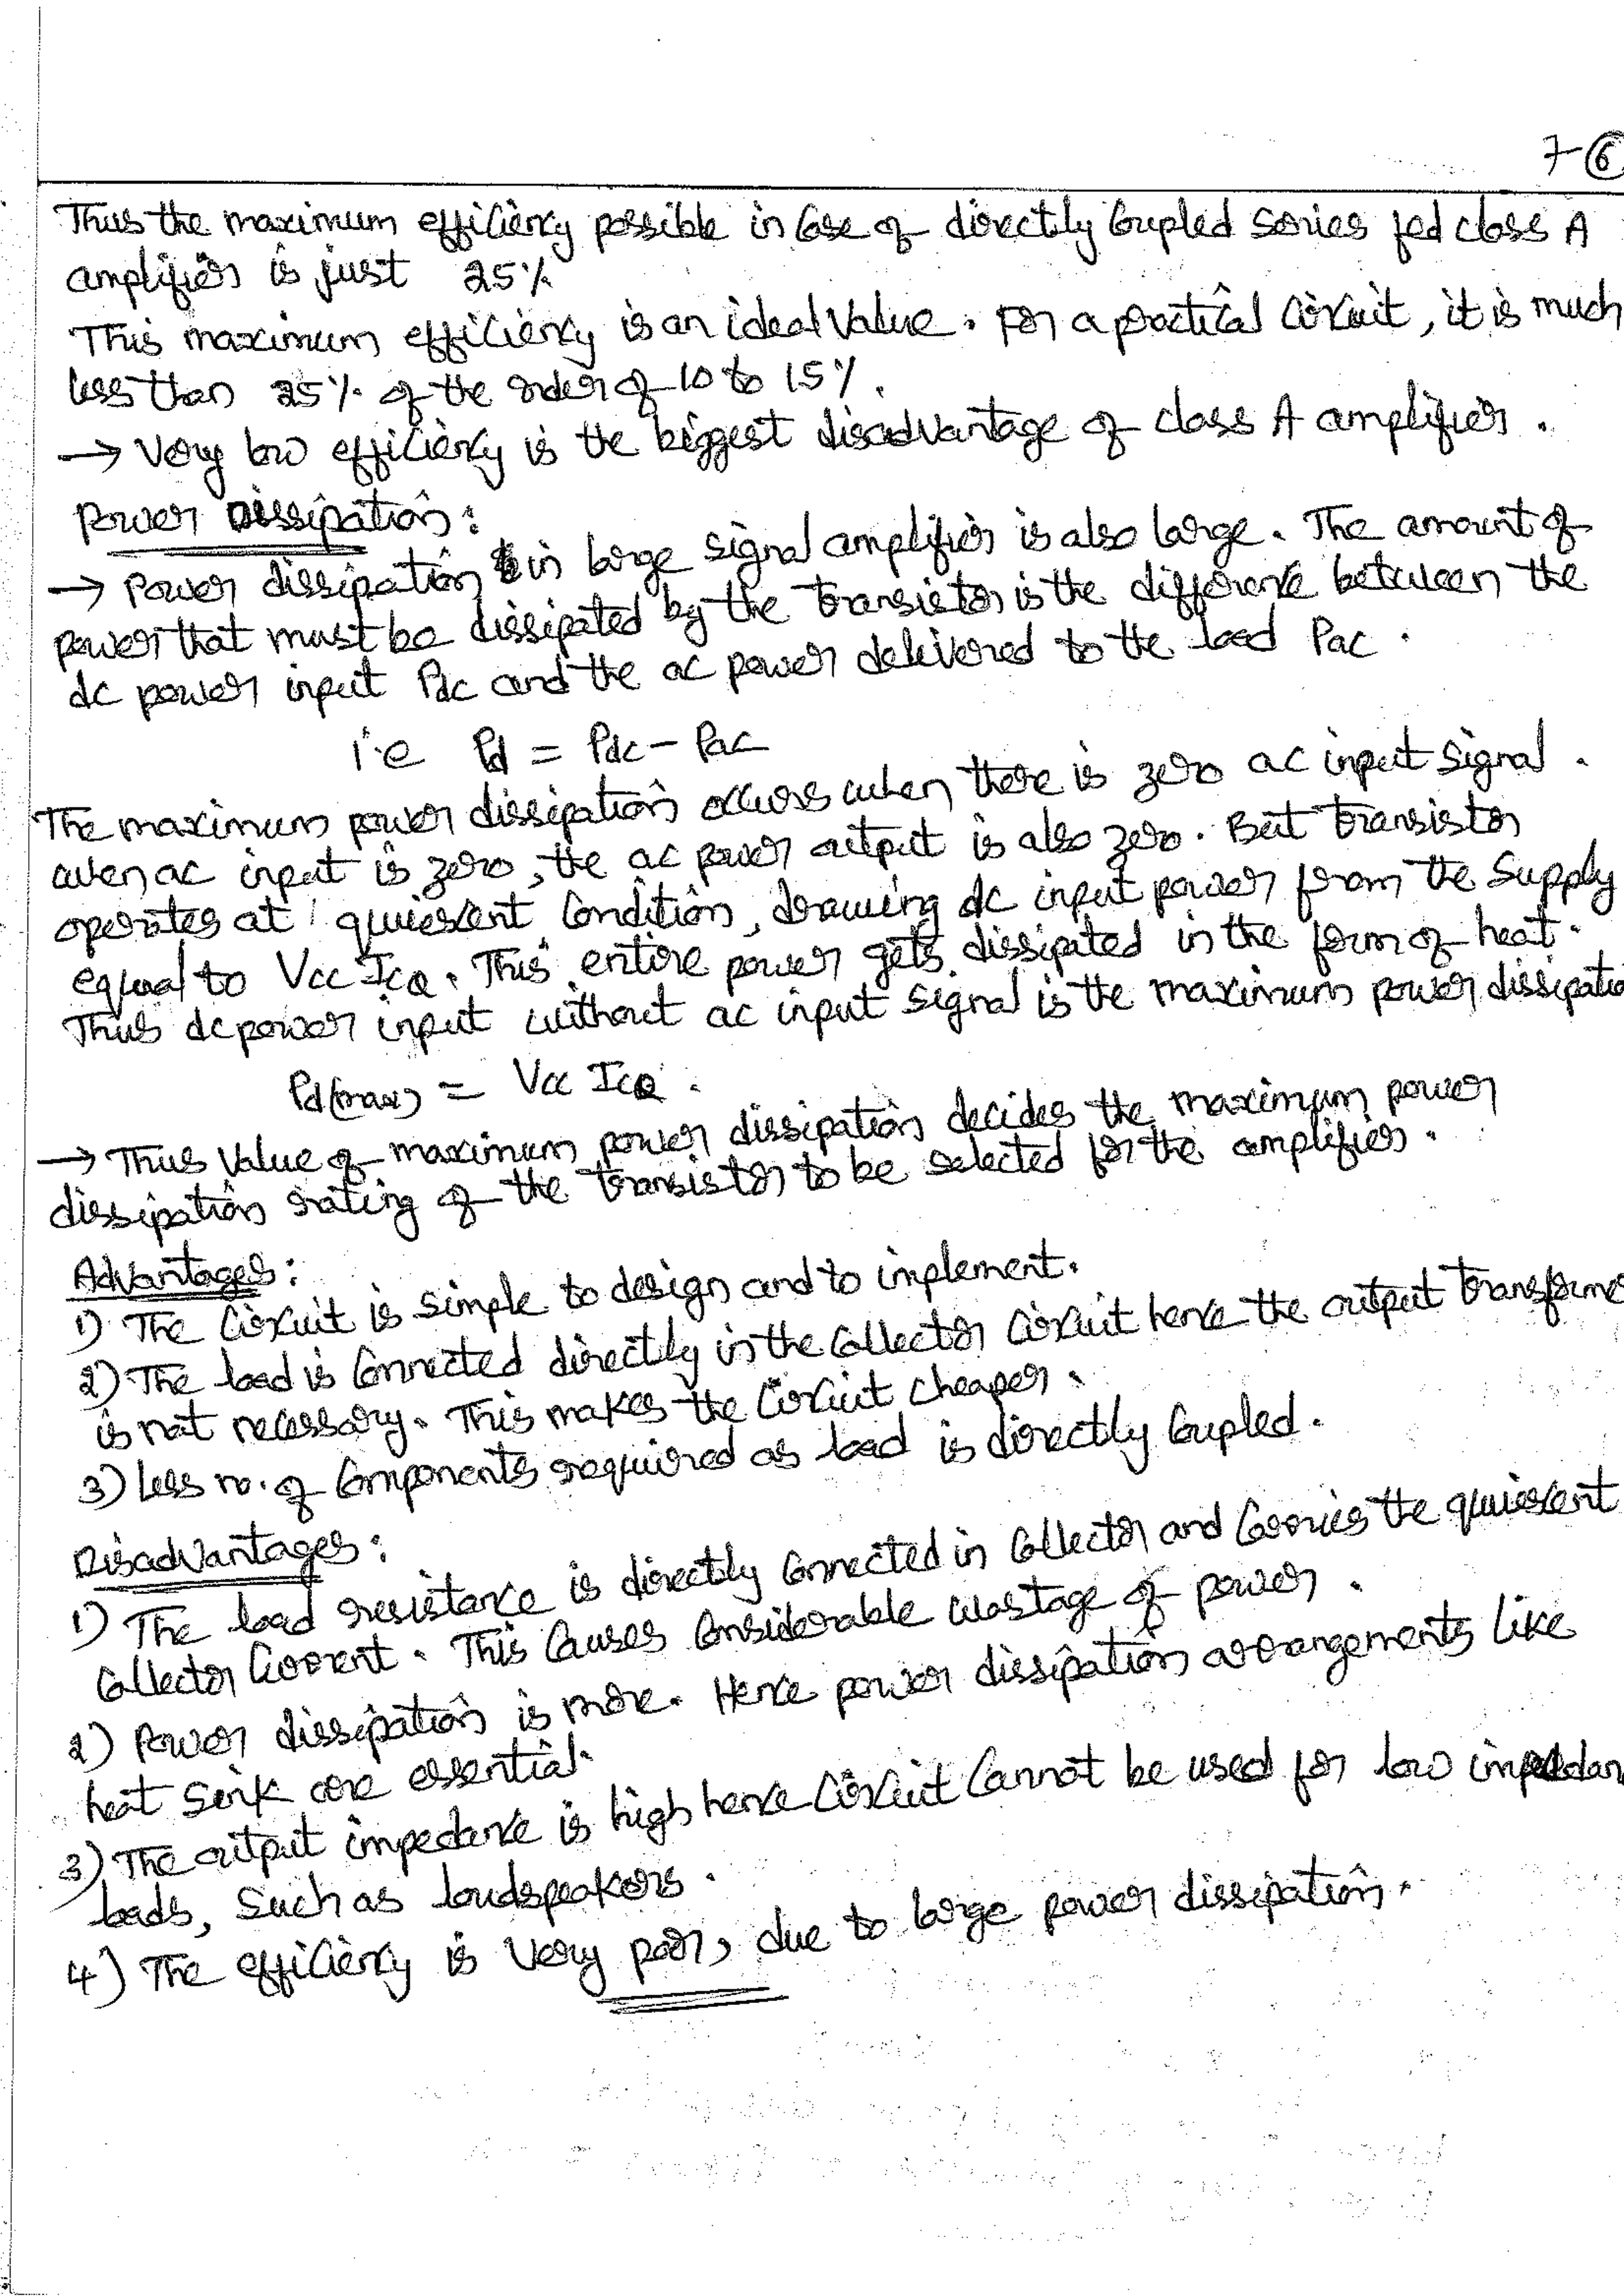 7-⑥
Thus the maximum efficiency possible in case of directly coupled series fed class A
amplifier is just 25%
This maximum efficiency is an ideal value. For a practical circuit, it is much
less than 25% of the order of 10 to 15%.
→ Very low efficiency is the biggest disadvantage of class A amplifier.
Power Dissipation:
→ Power dissipation in large signal amplifier is also large. The amount of
power that must be dissipated by the transistor is the difference between the
dc power input Pdc and the ac power delivered to the load Pac.
i.e Pd = Pdc - Pac
The maximum power dissipation occurs when there is zero ac input signal.
when ac input is zero, the ac power output is also zero. But transistor
operates at quiescent condition, drawing dc input power from the supply
equal to Vcc ICQ. This entire power gets dissipated in the form of heat.
Thus dc power input without ac input signal is the maximum power dissipatio
Pd(max) = Vcc ICQ.
→ Thus value of maximum power dissipation decides the maximum power
dissipation rating of the transistor to be selected for the amplifier.
Advantages:
1) The circuit is simple to design and to implement.
2) The load is connected directly in the collector circuit hence the output transforme
is not necessary. This makes the circuit cheaper.
3) Less no. of components required as load is directly coupled.
Disadvantages:
1) The load resistance is directly connected in collector and carries the quiescent
collector current. This causes considerable wastage of power.
2) Power dissipation is more. Hence power dissipation arrangements like
heat sink are essential.
3) The output impedance is high hence circuit cannot be used for low impedan
loads, such as loudspeakers.
4) The efficiency is very poor, due to large power dissipation.